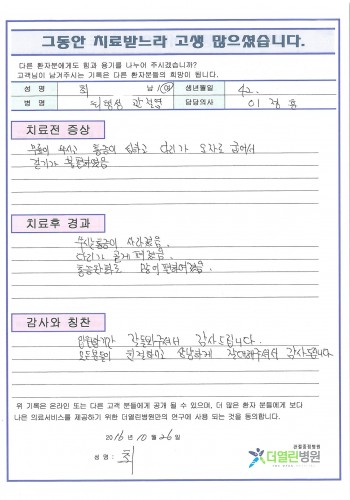 그동안 치료받느라 고생 많으셨습니다.
다른 환자분에게도 힘과 용기를 나누어 주시겠습니까?
고객님이 남겨주시는 기록은 다른 환자분들의 희망이 됩니다.
성 명 최 남 여 생년월일 42.
병 명 퇴행성 관절염 담당의사 이
치료전 증상
무릎이 쑤시고 통증이 심하고 다리가 오자로 굽어서
걷기가 불편하였음
치료후 경과
통증이 사라졌음.
다리가 곧게 펴졌음.
통증완화로 많이 편해졌음.
감사와 칭찬
입원기간 감사드립니다.
모든분들이 친절하고 상냥하게 감사드립니다
위 기록은 온라인 또는 다른 고객 분들에게 공개 될 수 있으며, 더 많은 환자 분들에게 보다
나은 의료서비스를 제공하기 위한 더열린병원만의 연구에 사용 되는 것을 동의합니다.
2016년 10월 26일
성 명 : 최
관절중점병원
더열린병원